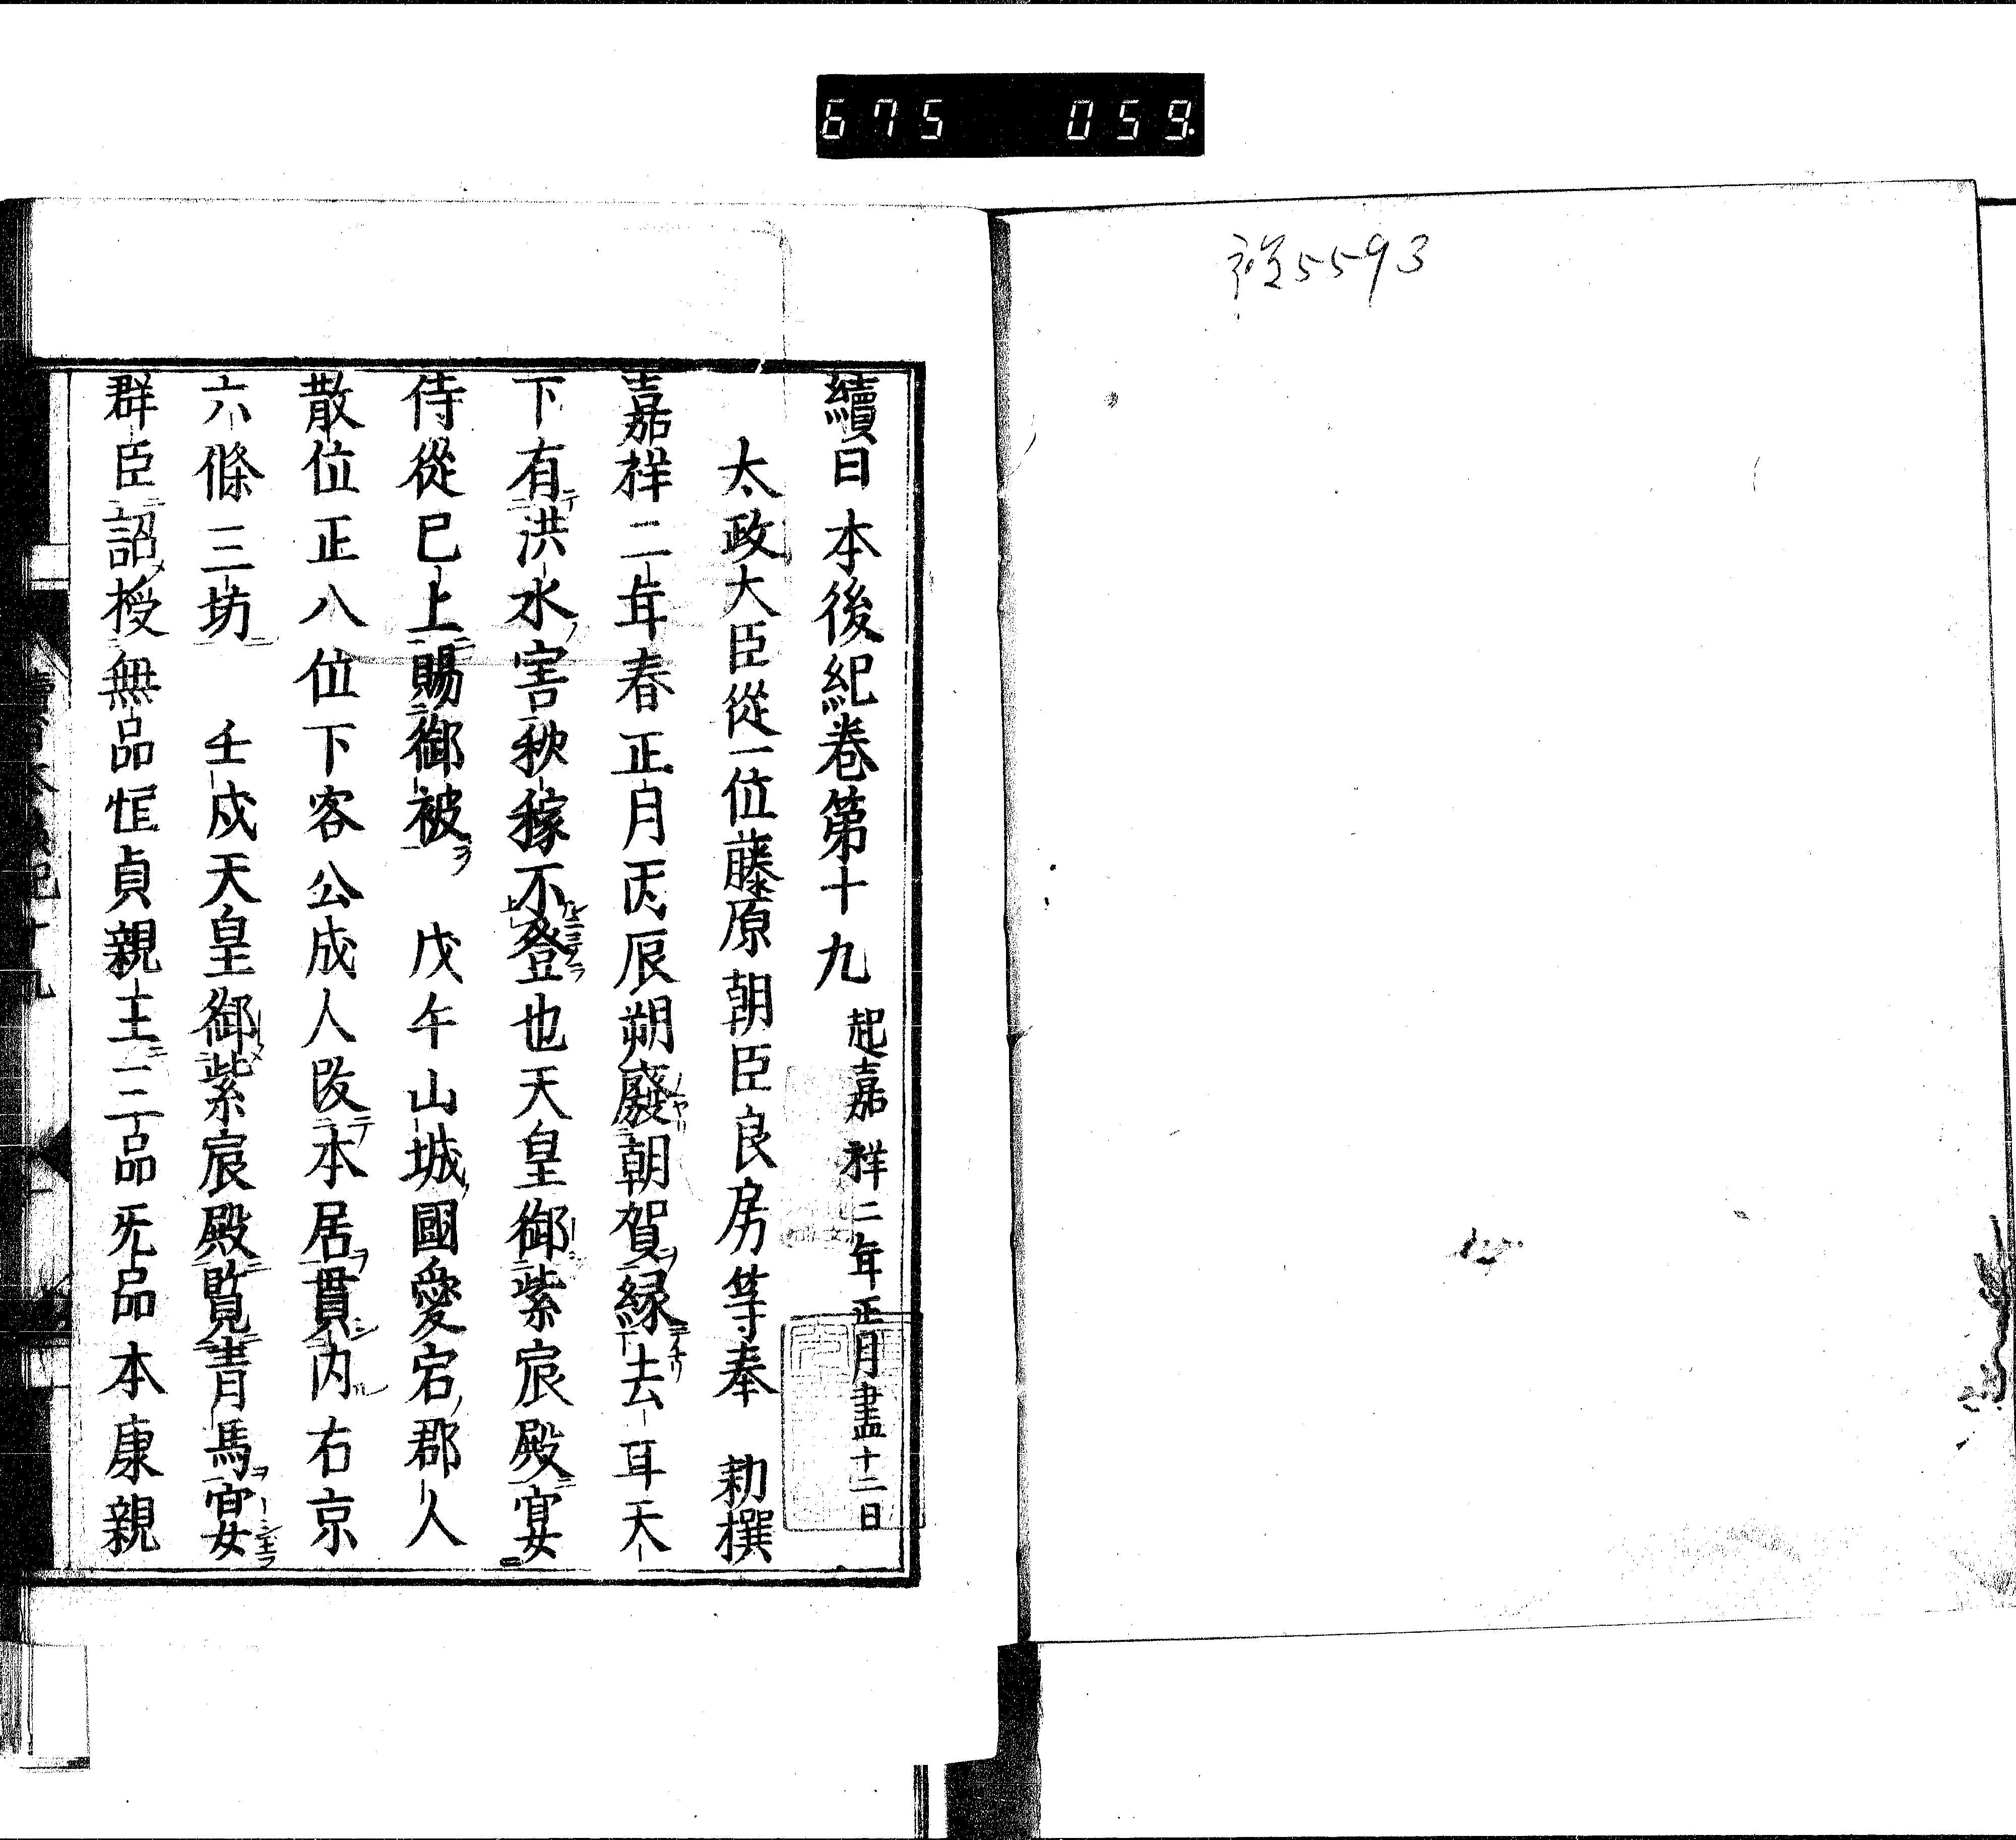 675 059
5593
續日本後紀卷第十九 起嘉祥二年正月盡十二日
太政大臣從一位藤原朝臣良房等奉 勅撰
嘉祥二年春正月丙辰朔廢朝賀緣去年天
下有洪水害秋稼不登也天皇御紫宸殿宴
侍從已上賜御被 戊午山城國愛宕郡人
散位正八位下客公成人改本居貫内右京
六條三坊 壬戌天皇御紫宸殿覧青馬宴
群臣詔授無品恒貞親王三品无品本康親